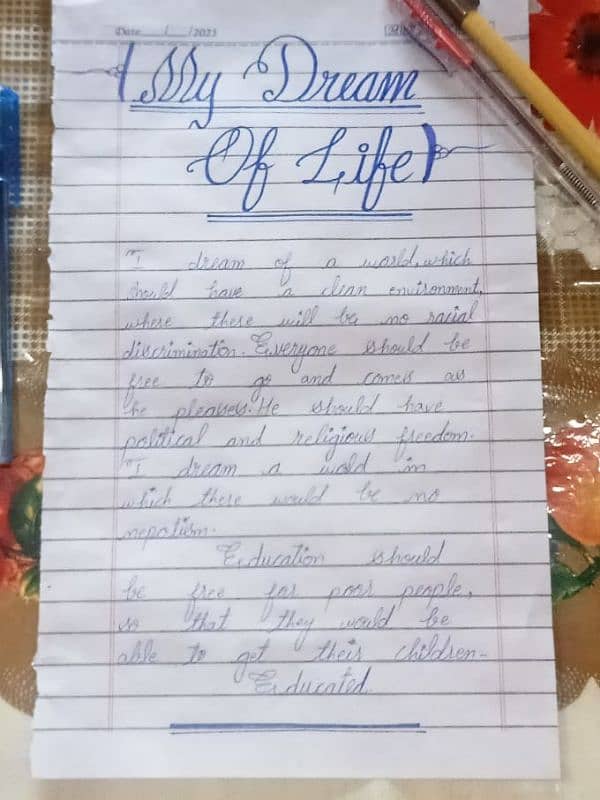 Date / /2023
My Dream
Of Life
"I dream of a world, which
should have a clean environment,
where there will be no racial
discrimination. Everyone should be
free to go and comes as
he pleases. He should have
political and religious freedom.
"I dream a wold in
which there would be no
nepotism.
Education should
be free for poor people,
so that they would be
able to get their children-
Educated.